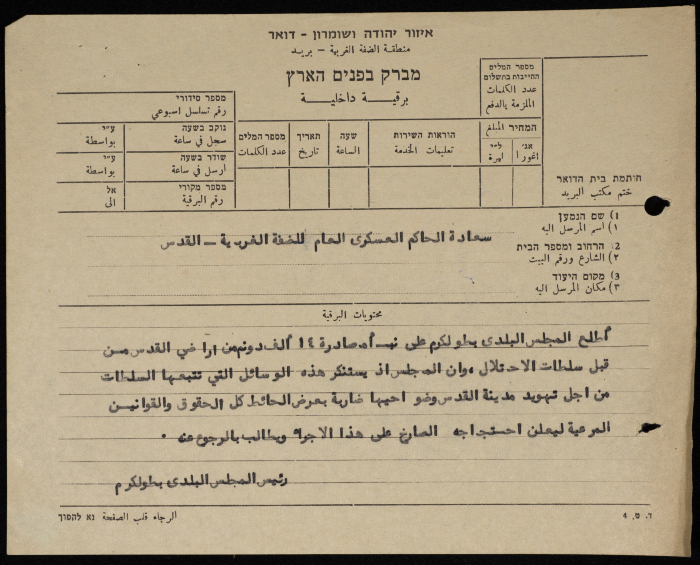 איזור יהודה ושומרון - דואר
منطقة الضفة الغربية - بريد
מברק בפנים הארץ
برقية داخلية
מספר המלים
החייבות בתשלום
عدد الكلمات
الملزمة بالدفع
המחיר المبلغ
אג' اغورا
ל"י ليرة
הוראות השירות
تعليمات الخدمة
שעה
الساعة
תאריך
تاريخ
מספר המלים
عدد الكلمات
מספר סידורי
رقم تسلسل اسبوعي
נוקב בשעה
سجل في ساعة
ע"י
بواسطة
שודר בשעה
ارسل في ساعة
ע"י
بواسطة
מספר מקורי
رقم البرقية
אל
الى
חותמת בית הדואר
ختم مكتب البريد
1) שם הנמען
١) اسم المرسل اليه
2. הרחוב ומספר הבית
٢) الشارع ورقم البيت
3) מקום היעוד
٣) مكان المرسل اليه
سعادة الحاكم العسكرى العام للضفة الغربية - القدس
محتويات البرقية
أطلع المجلس البلدى بطولكرم على نبأ مصادرة ١٤ ألف دونم من اراضي القدس من
قبل سلطات الاحتلال ، وان المجلس اذ يستنكر هذه الوسائل التي تتبعها السلطات
من اجل تهويد مدينة القدس وضواحيها ضاربة بعرض الحائط كل الحقوق والقوانين
المرعية ليعلن احتجاجه الصارخ على هذا الاجراء ويطالب بالرجوع عنه .
رئيس المجلس البلدى بطولكرم
الرجاء قلب الصفحة נא להפוך
ד. ט. 4